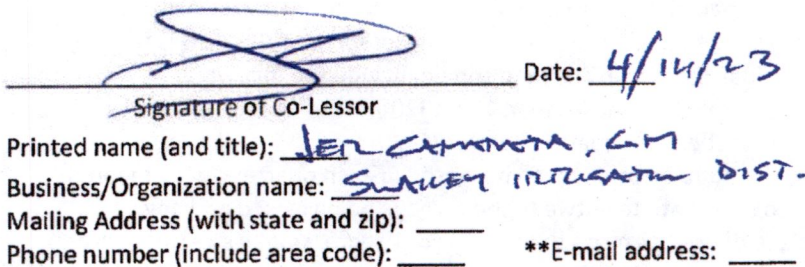 Date: 4/14/23
Signature of Co-Lessor
Printed name (and title): JER CAMARATA, GM
Business/Organization name: SWALLEY IRRIGATION DIST.
Mailing Address (with state and zip):
Phone number (include area code): **E-mail address: